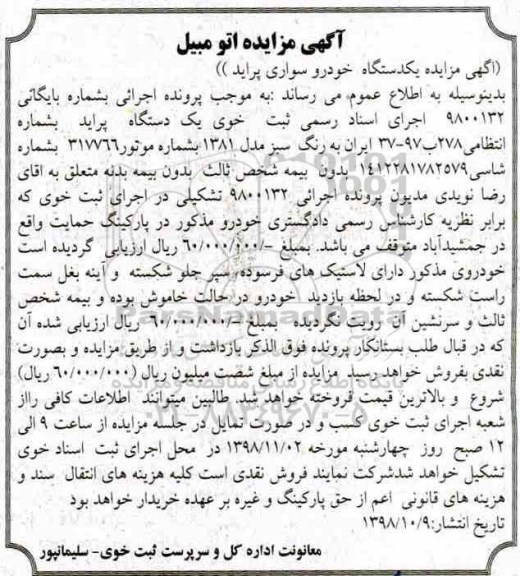 آگهی مزایده اتو مبیل
(اگهی مزایده یکدستگاه خودرو سواری پراید ))
بدینوسیله به اطلاع عموم می رساند :به موجب پرونده اجرائی بشماره بایگانی
۹۸۰۰۱۳۲ اجرای اسناد رسمی ثبت خوی یک دستگاه پراید بشماره
انتظامی۲۷۸ب۹۷-۳۷ ایران به رنگ سبز مدل ۱۳۸۱ بشماره موتور۳۱۷۷۶۶ بشماره
شاسی۱۴۱۲۲۸۱۷۸۲۵۷۹ بدون بیمه شخص ثالث بدون بیمه بدنه متعلق به اقای
رضا نویدی مدیون پرونده اجرائی ۹۸۰۰۱۳۲ تشکیلی در اجرای ثبت خوی که
برابر نظریه کارشناس رسمی دادگستری خودرو مذکور در پارکینگ حمایت واقع
در جمشیدآباد متوقف می باشد. بمبلغ -/۶۰/۰۰۰/۰۰۰ ریال ارزیابی گردیده است
خودروی مذکور دارای لاستیک های فرسوده، سپر جلو شکسته و اینه بغل سمت
راست شکسته و در لحظه بازدید خودرو در حالت خاموش بوده و بیمه شخص
ثالث و سرنشین آن رویت نگردیده بمبلغ -/۶۰/۰۰۰/۰۰۰ ریال ارزیابی شده آن
که در قبال طلب بستانکار پرونده فوق الذکر بازداشت و از طریق مزایده و بصورت
نقدی بفروش خواهد رسید مزایده از مبلغ شصت میلیون ریال (۶۰/۰۰۰/۰۰۰ ریال)
شروع و بالاترین قیمت فروخته خواهد شد. طالبین میتوانند اطلاعات کافی رااز
شعبه اجرای ثبت خوی کسب و در صورت تمایل در جلسه مزایده از ساعت ۹ الی
۱۲ صبح روز چهارشنبه مورخه ۱۳۹۸/۱۱/۰۲ در محل اجرای ثبت اسناد خوی
تشکیل خواهد شدشرکت نمایند فروش نقدی است کلیه هزینه های انتقال سند و
هزینه های قانونی اعم از حق پارکینگ و غیره بر عهده خریدار خواهد بود
تاریخ انتشار:۱۳۹۸/۱۰/۹
معاونت اداره کل و سرپرست ثبت خوی- سلیمانپور
ParsNamadData
پایگاه اطلاع رسانی مناقصه و مزایده
۰۲۱-۸۸۳۴۹۶۷۰-۵